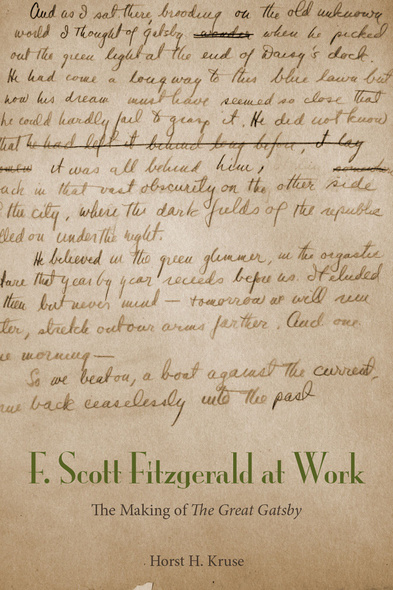 And as I sat there, brooding on the old unknown
world I thought of Gatsby when he picked
out the green light at the end of Daisy's dock.
He had come a long way to this blue lawn but
now his dream must have seemed so close that
he could hardly fail to grasp it. He did not know
that he had left it behind long before, it lay
it was all behind him,
ack in that vast obscurity on the other side
the city, where the dark fields of the republic
lled on under the night.
He believed in the green glimmer, in the orgastic
ture that year by year recedes before us. It eluded
then but never mind — tomorrow we will run
ter, stretch out our arms farther. And one
ne morning —
So we beat on, a boat against the current,
rne back ceaselessly into the past
F. Scott Fitzgerald at Work
The Making of The Great Gatsby
Horst H. Kruse